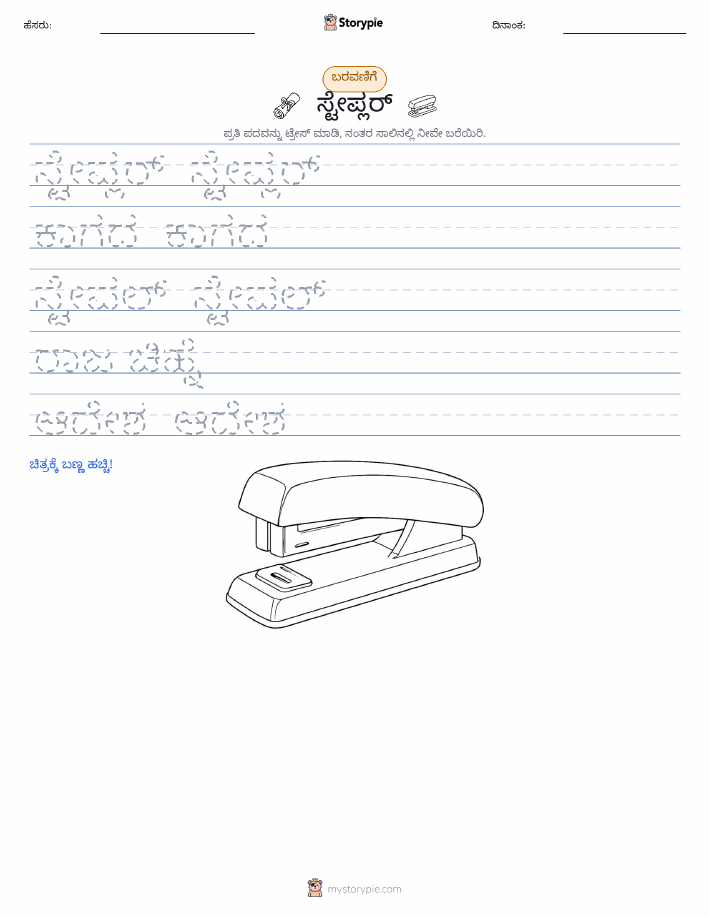 ಹೆಸರು:
Storypie
ದಿನಾಂಕ:
ಬರವಣಿಗೆ
ಸ್ಟೇಪ್ಲರ್
ಪ್ರತಿ ಪದವನ್ನು ಟ್ರೇಸ್ ಮಾಡಿ, ನಂತರ ಸಾಲಿನಲ್ಲಿ ನೀವೇ ಬರೆಯಿರಿ.
ಸ್ಟೇಪ್ಲರ್ ಸ್ಟೇಪ್ಲರ್
ಕಾಗದ ಕಾಗದ
ಸ್ಟೇಪಲ್ ಸ್ಟೇಪಲ್
ರಾಜ ಚಿಹ್ನೆ
ಆದೇಶ ಆದೇಶ
ಚಿತ್ರಕ್ಕೆ ಬಣ್ಣ ಹಚ್ಚಿ!
mystorypie.com